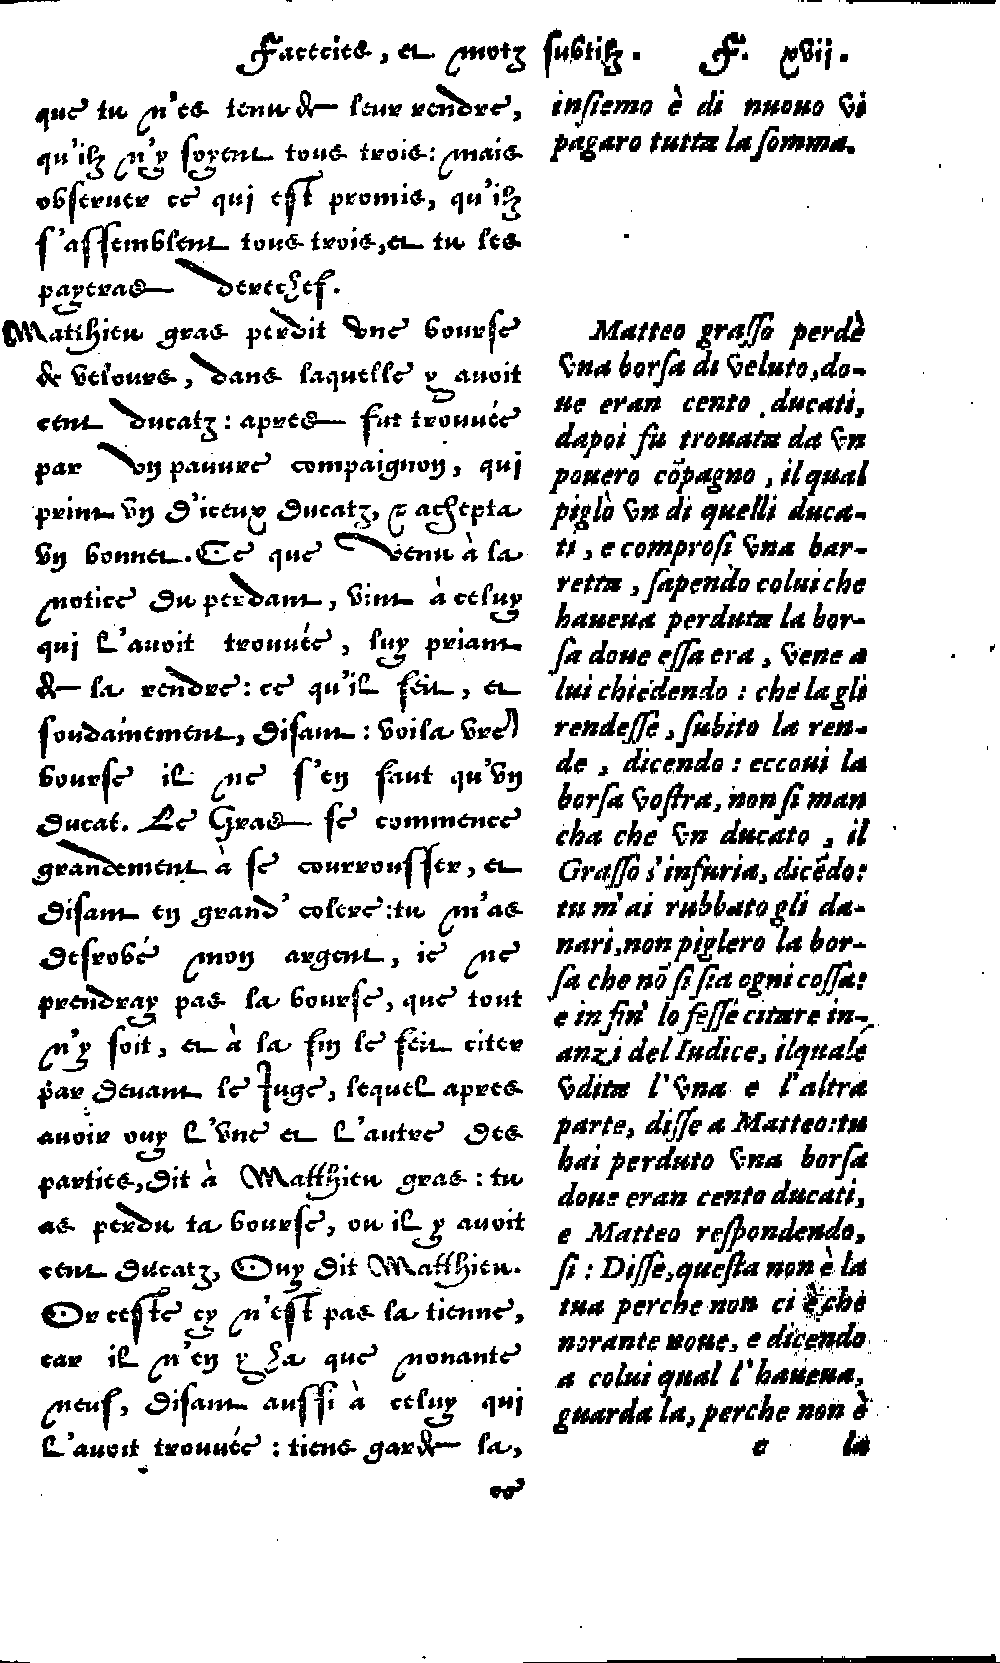 Facecies, et motz subtilz. F. xvij.
que tu n'es tenu de leur rendre,
qu'ilz n'y soyent tous trois: mais
obseruer ce qui est promis, qu'ilz
s'assemblent tous trois, et tu les
payeras derechef.
Matthieu gras perdit vne bourse
de velours, dans laquelle y auoit
cent ducatz: apres fut trouuée
par vn pauure compaignon, qui
print vn d'iceux ducatz, & achepta
vn bonnet. Ce que venu à la
notice du perdant, vint à celuy
qui l'auoit trouuée, luy priant
de la rendre: ce qu'il feit, et
soudainement, disant: voila vr̃e
bourse il ne s'en faut qu'vn
ducat. Le Gras se commence
grandement à se courrousser, et
disant en grand' colere: tu m'as
desrobé mon argent, ie ne
prendray pas la bourse, que tout
n'y soit, et à la fin le feit citer
par deuant le Iuge, lequel apres
auoir ouy l'vne et l'autre des
parties, dit à Matthieu gras: tu
as perdu ta bourse, ou il y auoit
cent ducatz, Ouy dit Matthieu.
Or ceste cy n'est pas la tienne,
car il n'en y ha que nonante
neuf, disant aussi à celuy qui
l'auoit trouuée: tiens garde la,
insiemo è di nuouo vi
pagaro tutta la somma.
Matteo grasso perdè
vna borsa di veluto, do-
ue eran cento ducati,
dapoi fu trouata da vn
pouero cõpagno, il qual
piglò vn di quelli duca-
ti, e comprosi vna bar-
retta, sapendo colui che
haueua perduta la bor-
sa doue essa era, vene a
lui chiedendo: che la gli
rendesse, subito la ren-
de, dicendo: eccoui la
borsa vostra, non si man
cha che vn ducato, il
Grasso s'infuria, dicẽdo:
tu m'ai rubbato gli da-
nari, non piglero la bor-
sa che nõ si sia ogni cossa:
e in fin' lo fesse citare in-
anzi del Iudice, ilquale
vdita l'vna e l'altra
parte, disse a Matteo: tu
hai perduto vna borsa
doue eran cento ducati,
e Matteo respondendo,
si: Disse, questa non è la
tua perche non ci è che
norante noue, e dicendo
a colui qual l'haueua,
guarda la, perche non è
e la